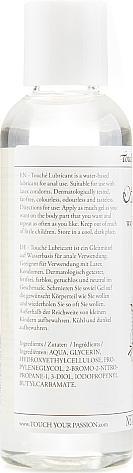 EN - Touché Lubricant is a water-based
lubricant for anal use. Suitable for use with
latex condoms. Dermatologically tested,
fat-free, colourless, odourless and tasteless.
Directions for use: Apply as much gel as you
want on the body part that you want and
repeat as often as you like. Keep out of reach
of little children. Store in a cool, dark place.
DE - Touché Lubricant ist ein Gleitmittel
auf Wasserbasis für anale Verwendung.
Geeignet für Verwendung mit Latex
Kondomen. Dermatologisch getestet,
fettfrei, farblos, geruchlos und neutral im
Geschmack. Schmieren Sie soviel Gel auf
die gewünscht Körperteil wie Sie wollen
und wiederholen Sie so oft Sie wollen.
Außerhalb der Reichweite von kleinen
Kindern aufbewahren. Kühl und dunkel
aufbewahren.
Ingredients / Zutaten /
Ingrediënten: AQUA, GLYCERIN,
HYDROXYETHYLCELLULOSE, PRO-
PYLENEGLYCOL, 2-BROMO-2-NITRO-
PROPANE-1, 3-DIOL, IODOPROPYNYL
BUTYLCARBAMATE.
www.TOUCH YOUR PASSION.com